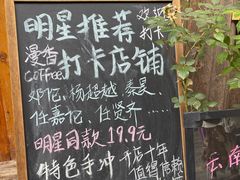 明星推荐
欢迎
打卡
漫香
coffee
打卡店铺
邓伦、杨超越、秦昊、
任嘉伦、任贤齐……
明星同款 19.9元
特色手冲
开店十年
值得信赖
云南